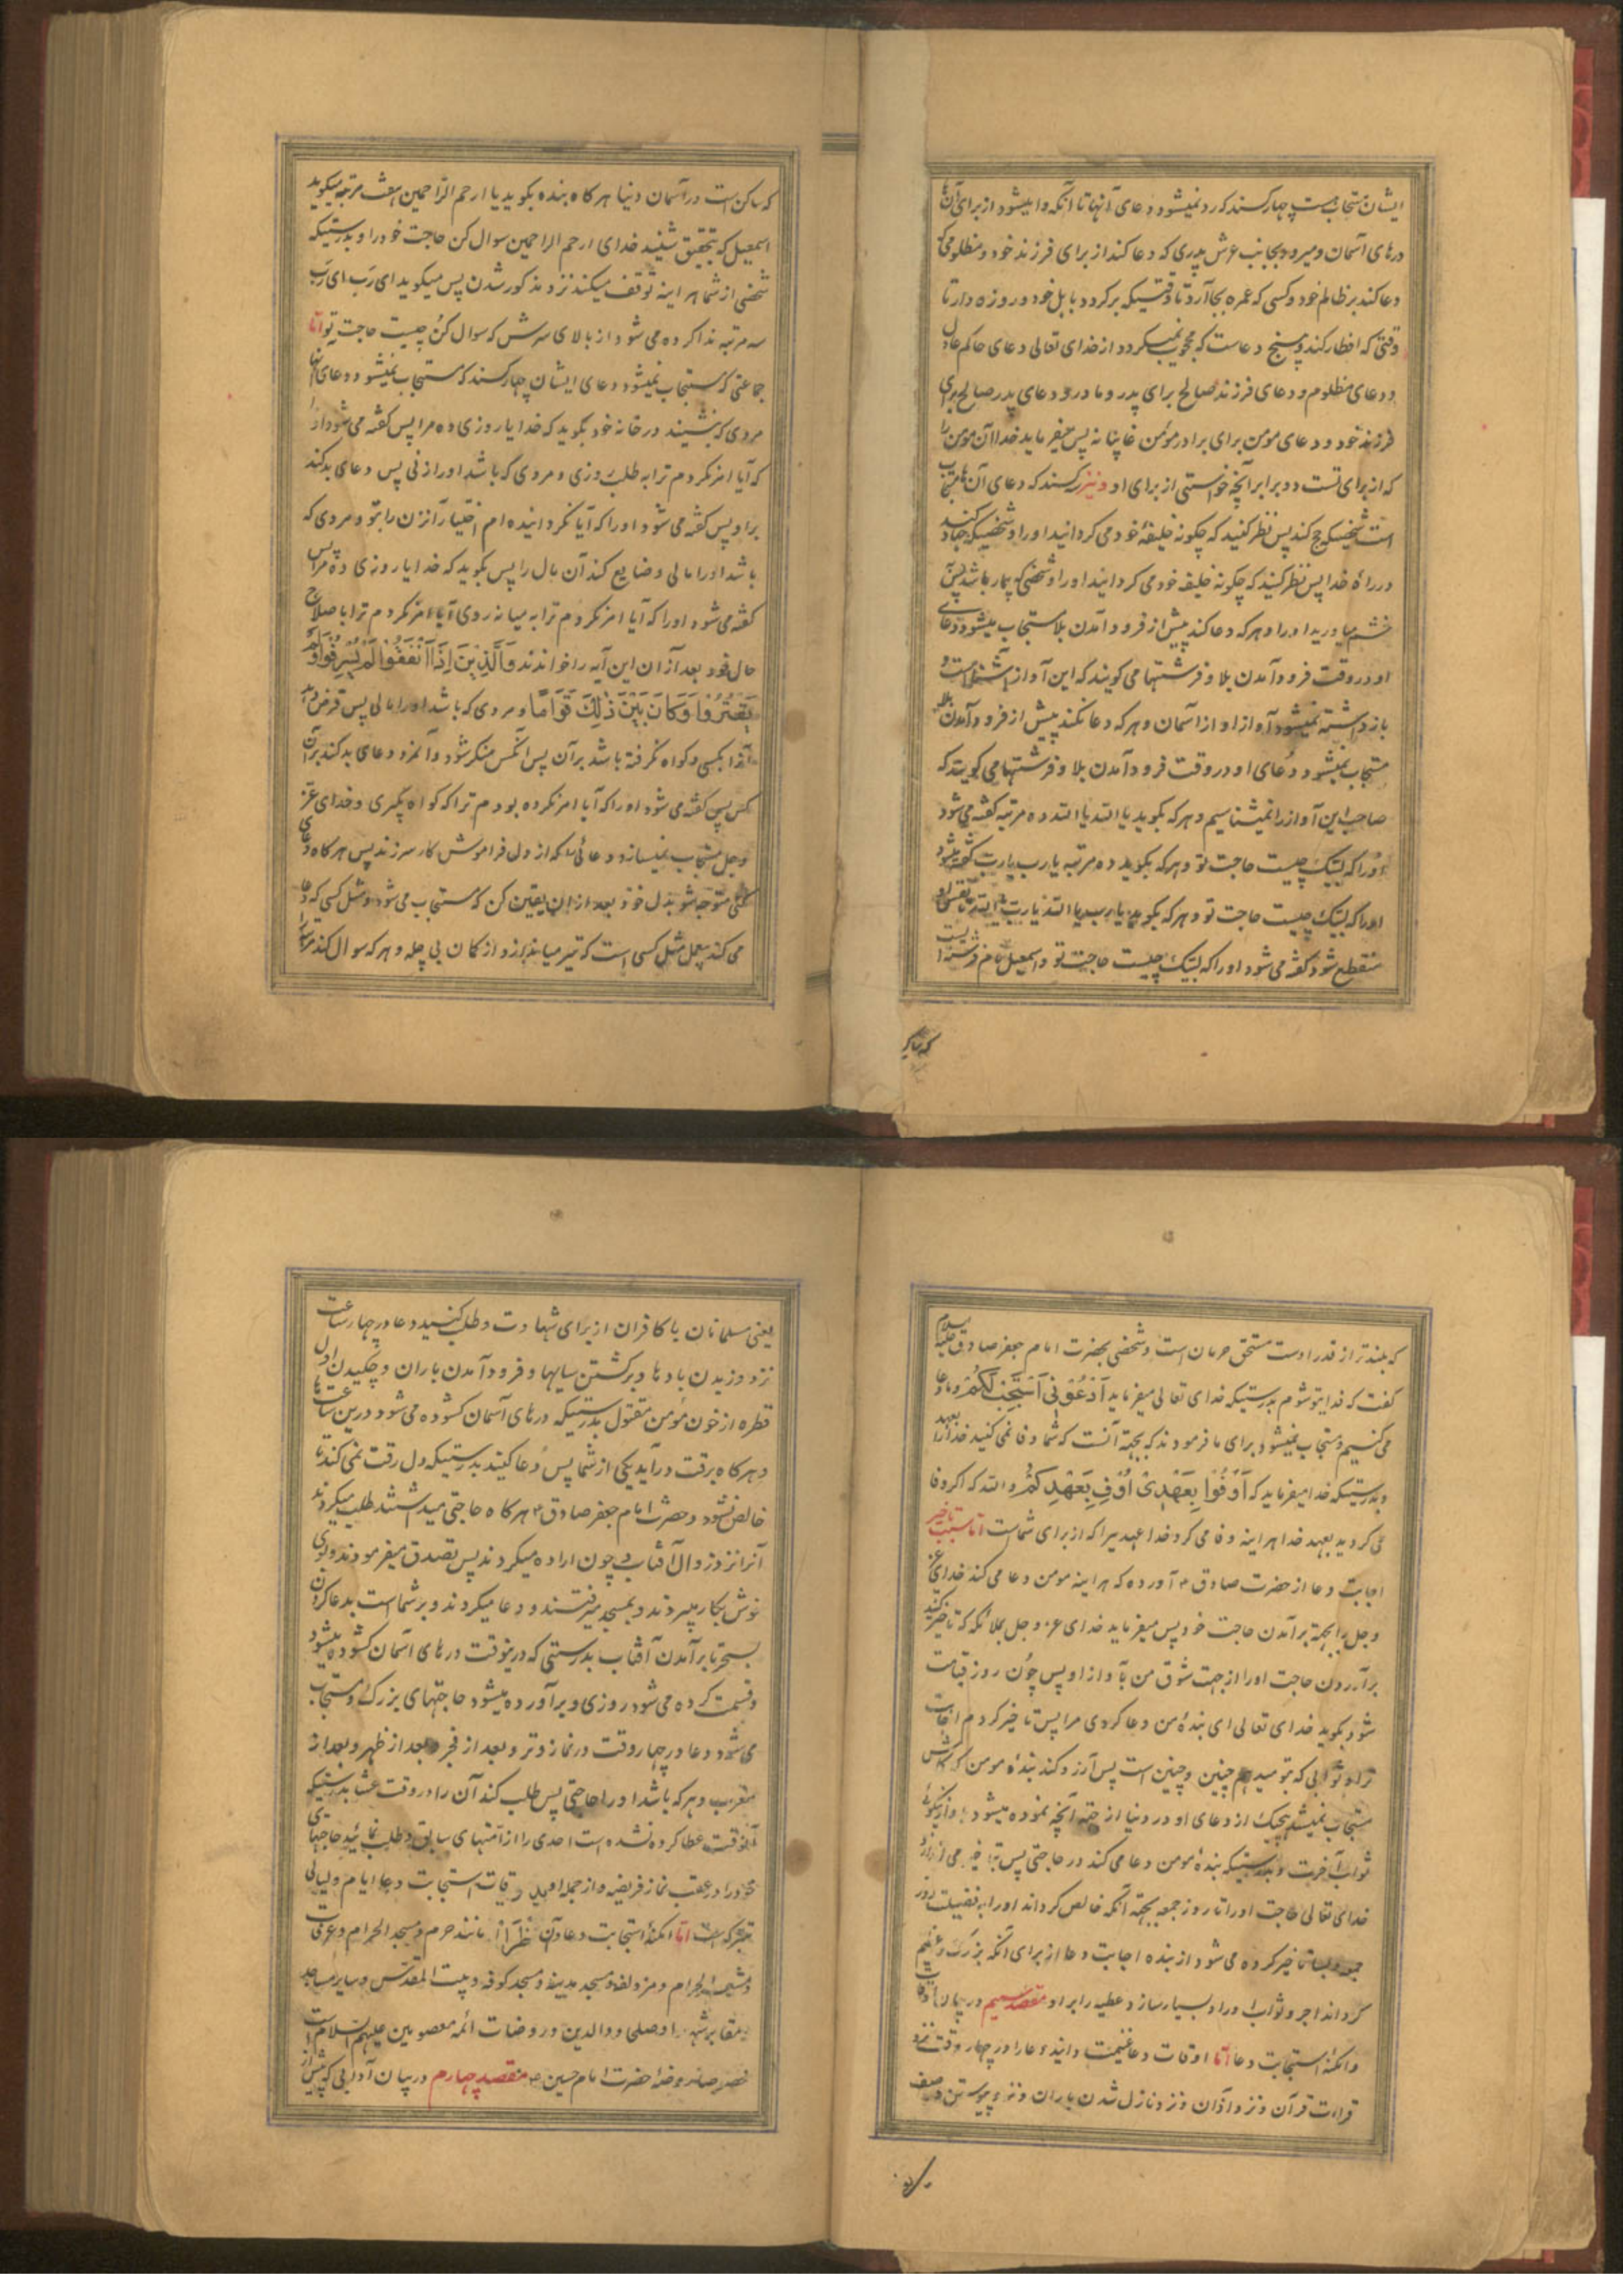 ایشان مستجابست چهار کسند که رد نمیشود دعای آنها تا آنکه وا میشود از برای آن
درهای آسمان و میرود بجانب عرش پدری که دعا کند از برای فرزند خود و مظلومی که
دعا کند بر ظالم خود و کسی که عمره بجا آرد تا وقتیکه برگردد باهل خود و روزه دار تا
وقتی که افطار کند و پنج دعاست که محجوب نمیگردد از خدای تعالی دعای حاکم عادل
و دعای مظلوم و دعای فرزند صالح برای پدر و مادر و دعای پدر صالح برای
فرزند خود و دعای مومن برای برادر مؤمن غایبانه پس میفرماید خدا آن مومن را
که از برای تست دو برابر آنچه خواستی از برای او و نیز سه کسند که دعای آنها مستجاب
است شخصیکه حج کند پس نظر کنید که چگونه خلیفهٔ خود می گردانید او را و شخصیکه جهاد کند
در راه خدا پس نظر کنید که چگونه خلیفه خود می گردانید او را و شخصی که بیمار باشد پس
خشم میاورید او را و هر که دعا کند پیش از فرود آمدن بلا مستجاب میشود دعای
او در وقت فرود آمدن بلا و فرشتها می گویند که این آواز آشناست و
باز داشته نمیشود آواز او از آسمان و هر که دعا نکند پیش از فرود آمدن بلا
مستجاب نمیشود دعای او در وقت فرود آمدن بلا و فرشتها می گویند که
صاحب این آواز را نمیشناسیم و هر که بگوید یا الله یا الله ده مرتبه گفته می شود
او را که لبیک چیست حاجت تو و هر که بگوید ده مرتبه یا رب یا رب گفته میشود
او را که لبیک چیست حاجت تو و هر که بگوید یا رب یا الله یا رب یا الله تا نفس او
منقطع شود گفته می شود او را که لبیک چیست حاجت تو و اسمعیل نام فرشته ایست
که ساکن
که ساکن است در آسمان دنیا هر گاه بنده بگوید یا ارحم الراحمین هفت مرتبه میگوید
اسمعیل که بتحقیق شنید خدای ارحم الراحمین سوال کن حاجت خود را و بدرستیکه
شخصی از شما هر اینه توقف میکند نزد مذکور شدن پس میگوید ای رب ای رب
سه مرتبه ندا کرده می شود از بالای سرش که سوال کن چیست حاجت تو اما
جماعتی که مستجاب نمیشود دعای ایشان چهار کسند که مستجاب نمیشود دعای آنها
مردی که بنشیند در خانه خود بگوید که خدایا روزی ده مرا پس گفته می شود او را
که آیا امر نکردم ترا به طلب روزی و مردی که باشد او را زنی پس دعای بد کند
بر او پس گفته می شود او را که آیا نگردانیده ام اختیار آن زن را بتو و مردی که
باشد او را مالی و ضایع کند آن مال را پس بگوید که خدایا روزی ده مرا پس
گفته می شود او را که آیا امر نکردم ترا به میانه روی آیا امر نکردم ترا باصلاح
حال خود بعد از آن این آیه را خواندند وَالَّذِینَ إِذَا أَنْفَقُوا لَمْ یُسْرِفُوا وَلَمْ
یَقْتُرُوا وَکَانَ بَیْنَ ذٰلِکَ قَوَامًا و مردی که باشد او را مالی پس قرض دهد
آنرا بکسی و گواه نگرفته باشد بر آن پس آنکس منکر شود و آنمرد دعای بد کند بر آن
کس پس گفته می شود او را که آیا امر نکرده بودم ترا که گواه بگیری و خدای عز
وجل مستجاب نمیسازد دعائی را که از دل فراموش کار سر زند پس هر گاه دعای
کنی متوجه شو بدل خود بعد از آن یقین کن که مستجاب می شود و مثل کسی که دعا
می کند بیعمل مثل کسی است که تیر میاندازد از کمان بی چله و هر که سوال کند مرتبه
که بلندتر از قدر اوست مستحق حرمان است و شخصی بحضرت امام جعفر صادق علیه السلام
گفت که فدایتو شوم بدرستیکه خدای تعالی میفرماید اُدْعُونِی اَسْتَجِبْ لَکُمْ و ما دعا
می کنیم و مستجاب نمیشود برای ما فرمودند که بجهة آنست که شما وفا نمی کنید بعهد خدا را
و بدرستیکه خدا میفرماید که اَوْفُوا بِعَهْدِی اُوفِ بِعَهْدِکُمْ والله که اگر وفا
می کردید بعهد خدا هر اینه وفا می کرد خدا عهدیرا که از برای شماست اما سبب تاخیر
اجابت دعا از حضرت صادق ع آورده که هر اینه مومن دعا می کند خدای عز
وجل را بجهة برآمدن حاجت خود پس میفرماید خدای عز وجل بملائکه که تاخیر کنید
برآوردن حاجت او را از جهت شوق من بآواز او پس چون روز قیامت
شود بگوید خدای تعالی ای بندهٔ من دعا کردی مرا پس تاخیر کردم اجابت
ترا و ثوابی که بتو میدهم چنین و چنین است پس آرزو کند بندهٔ مومن که کاش
مستجاب نمیشد هیچیک از دعای او در دنیا از جهة آنچه نموده میشود باو از نیکوئی
ثواب آخرت و بدرستیکه بندهٔ مومن دعا می کند در حاجتی پس تاخیر می اندازد
خدای تعالی حاجت او را تا روز جمعه بجهة آنکه خالص گرداند او را به فضیلت روز
جمعه و بسا تاخیر کرده می شود از بنده اجابت دعا از برای آنکه بزرگ و عظیم
گرداند اجر و ثواب او را و بسیار سازد عطیه را بر او مقصد سیم در بیان اوقات
و امکنهٔ استجابت دعا اما اوقات دعا غنیمت دانید دعا را در چهار وقت نزد
قراءت قرآن و نزد اذان و نزد نازل شدن باران و نزد پیوستن دو صف
یعنی مسلمانان با کافران از برای شهادت و طلب کنید دعا در چهار ساعت
نزد وزیدن بادها و برگشتن سایها و فرود آمدن باران و چکیدن اول
قطره از خون مؤمن مقتول بدرستیکه درهای آسمان گشوده می شود درین ساعتها
و هر گاه برقت در آید یکی از شما پس دعا کنید بدرستیکه دل رقت نمی کند تا
خالص نشود و حضرت امام جعفر صادق ع هر گاه حاجتی میداشتند طلب میکردند
آنرا نزد زوال آفتاب و چون اراده میکردند پس تصدق میفرمودند و بوی
خوش بکار میبردند و بمسجد میرفتند و دعا میکردند و بر شماست بدعا کردن
بسحر تا برآمدن آفتاب بدرستی که درینوقت درهای آسمان گشوده میشود
و قسمت کرده می شود روزی و برآورده میشود حاجتهای بزرگ و مستجاب
می شود دعا در چهار وقت در نماز وتر و بعد از فجر و بعد از ظهر و بعد از
مغرب و هر که باشد او را حاجتی پس طلب کند آن را در وقت عشا بدرستیکه
آنوقت عطا کرده نشده است احدی را از امتهای سابق و طلب نمائید حاجتهای
خود را در عقب نماز فریضه و از جمله اوقات استجابت دعا ایام و لیالی
متبرکه است اما امکنهٔ استجابت دعا مانند حرم و مسجد الحرام و عرفات
و مشعر الحرام و مزدلفه و مسجد مدینه و مسجد کوفه و بیت المقدس و سایر مساجد
و مقابر شهدا و صلحا و والدین و روضات ائمه معصومین علیهم السلام است
خصوصا روضهٔ حضرت امام حسین ع مقصد چهارم در بیان آدابی که پیش از